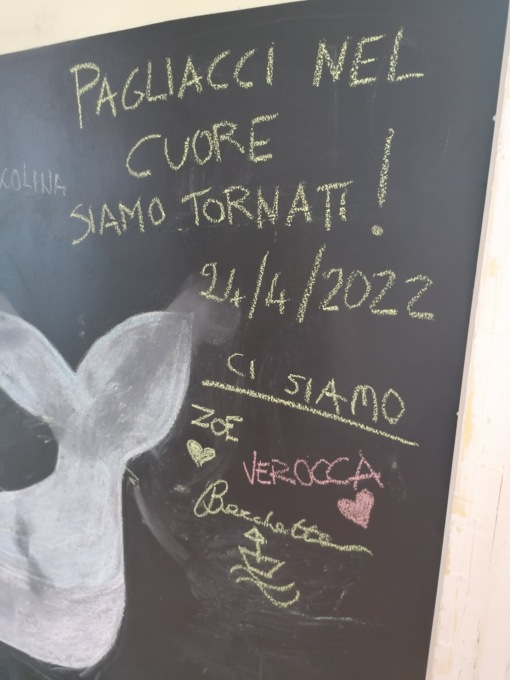 PAGLIACCI NEL
CUORE
COLINA
SIAMO TORNATI!
24/4/2022
CI SIAMO
ZOE
VEROCCA
Barchetta